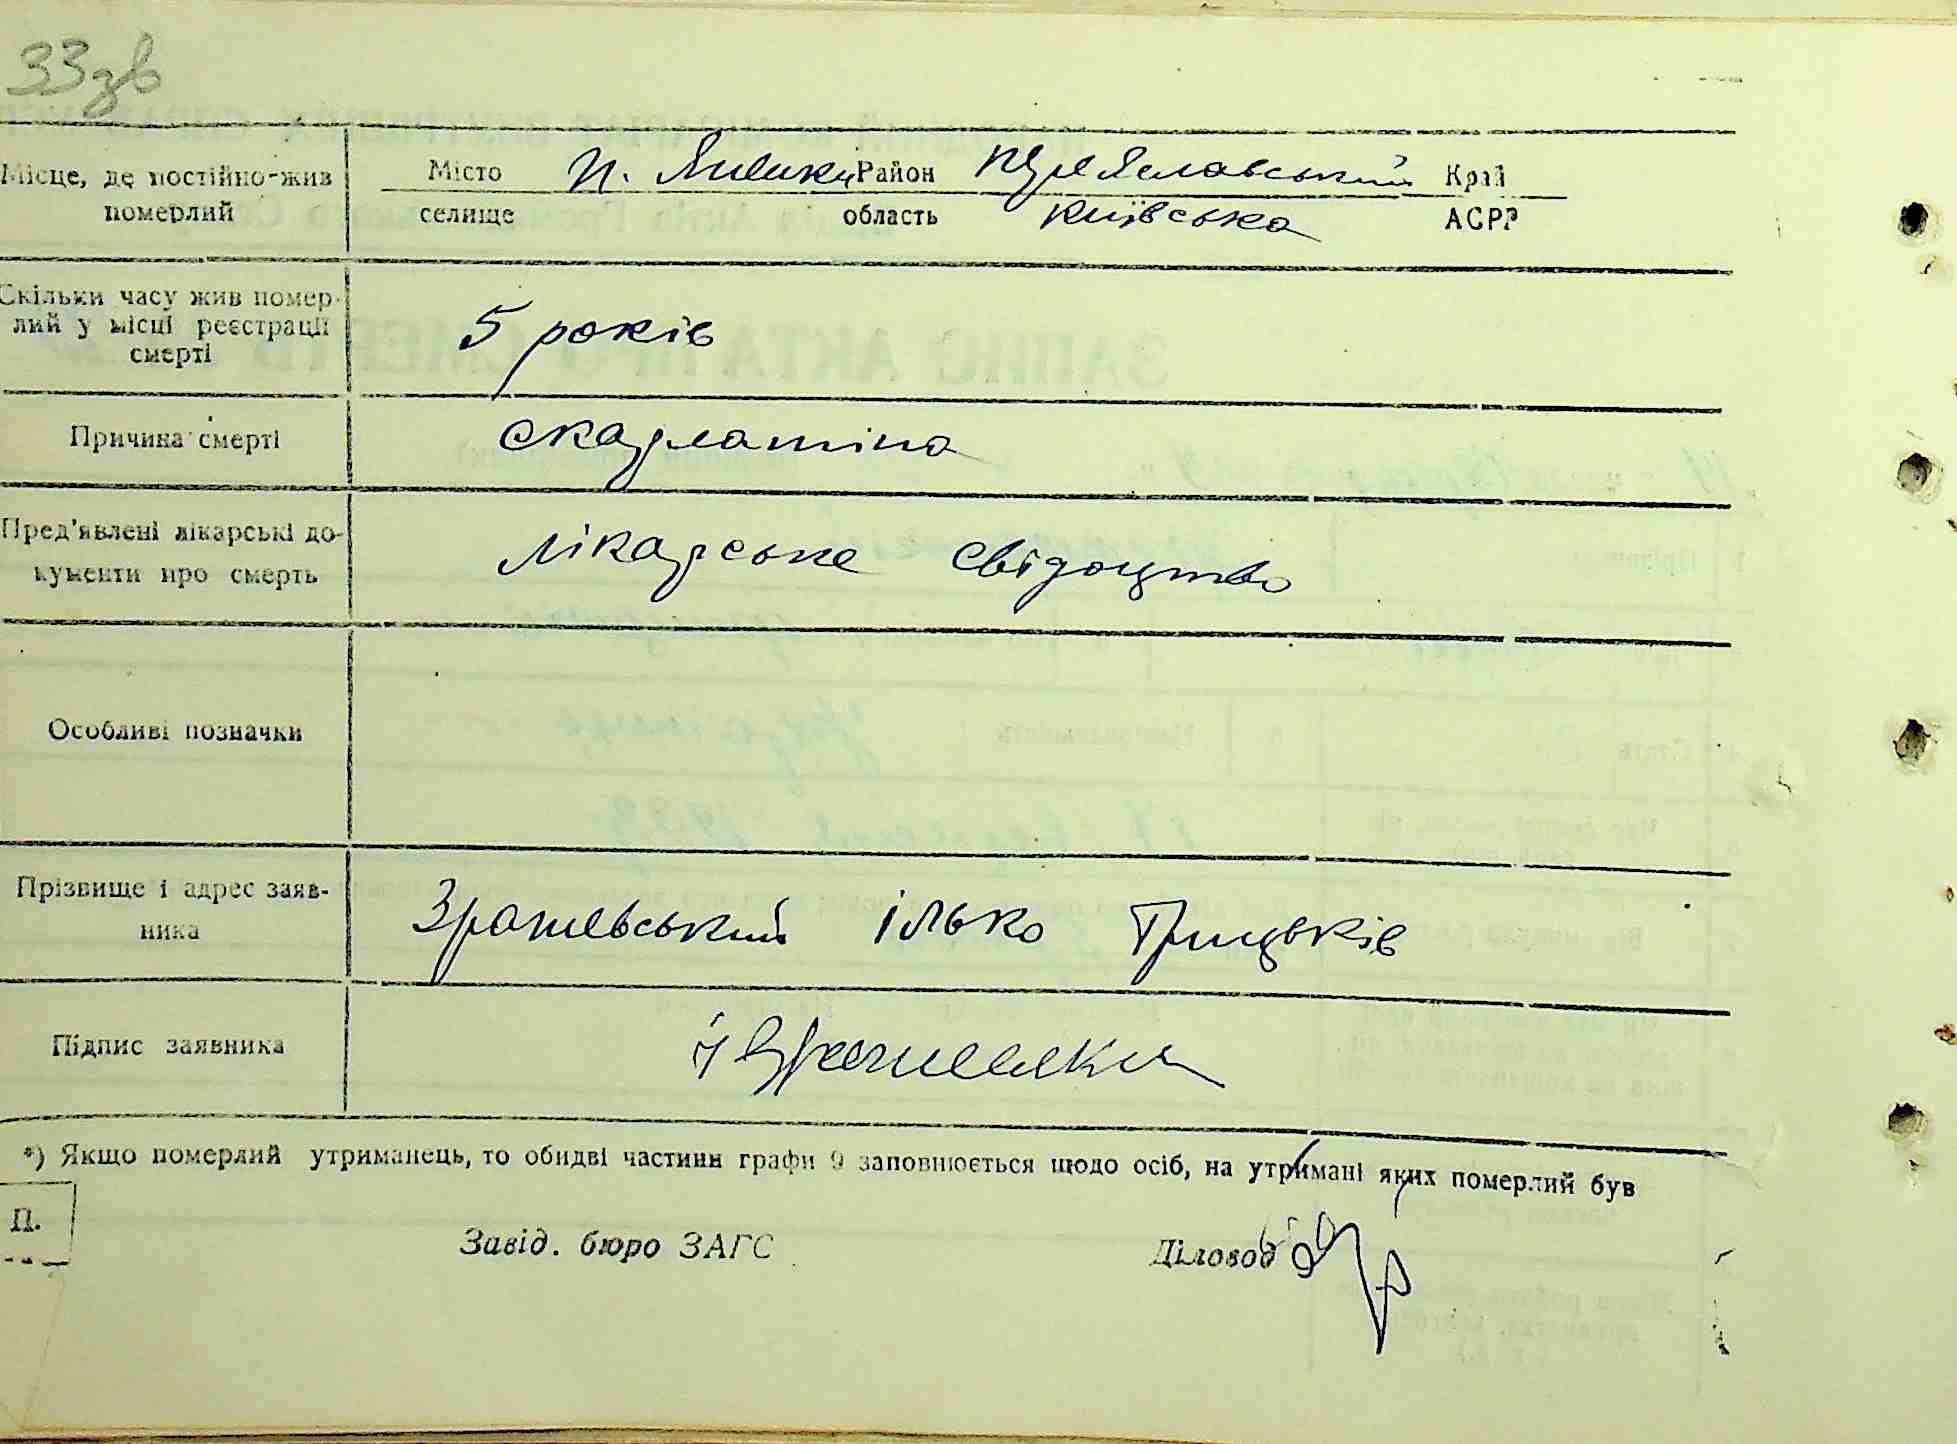 33зв
Місце, де постійно-жив померлий
Місто П. Яненки Район Переяславський Край
селище область Київська АСРР
Скільки часу жив помер-
лий у місці реєстрації
смерті
5 років
Причина смерті
скарлатіна
Пред'явлені лікарські до-
кументи про смерть
лікарське свідоцтво
Особливі позначки
Прізвище і адрес заяв-
ника
Зражевський ілько Грицьків
Підпис заявника
*) Якщо померлий утриманець, то обидві частини графи 9 заповнюється щодо осіб, на утримані яких померлий був
П.
Завід. бюро ЗАГС Діловод